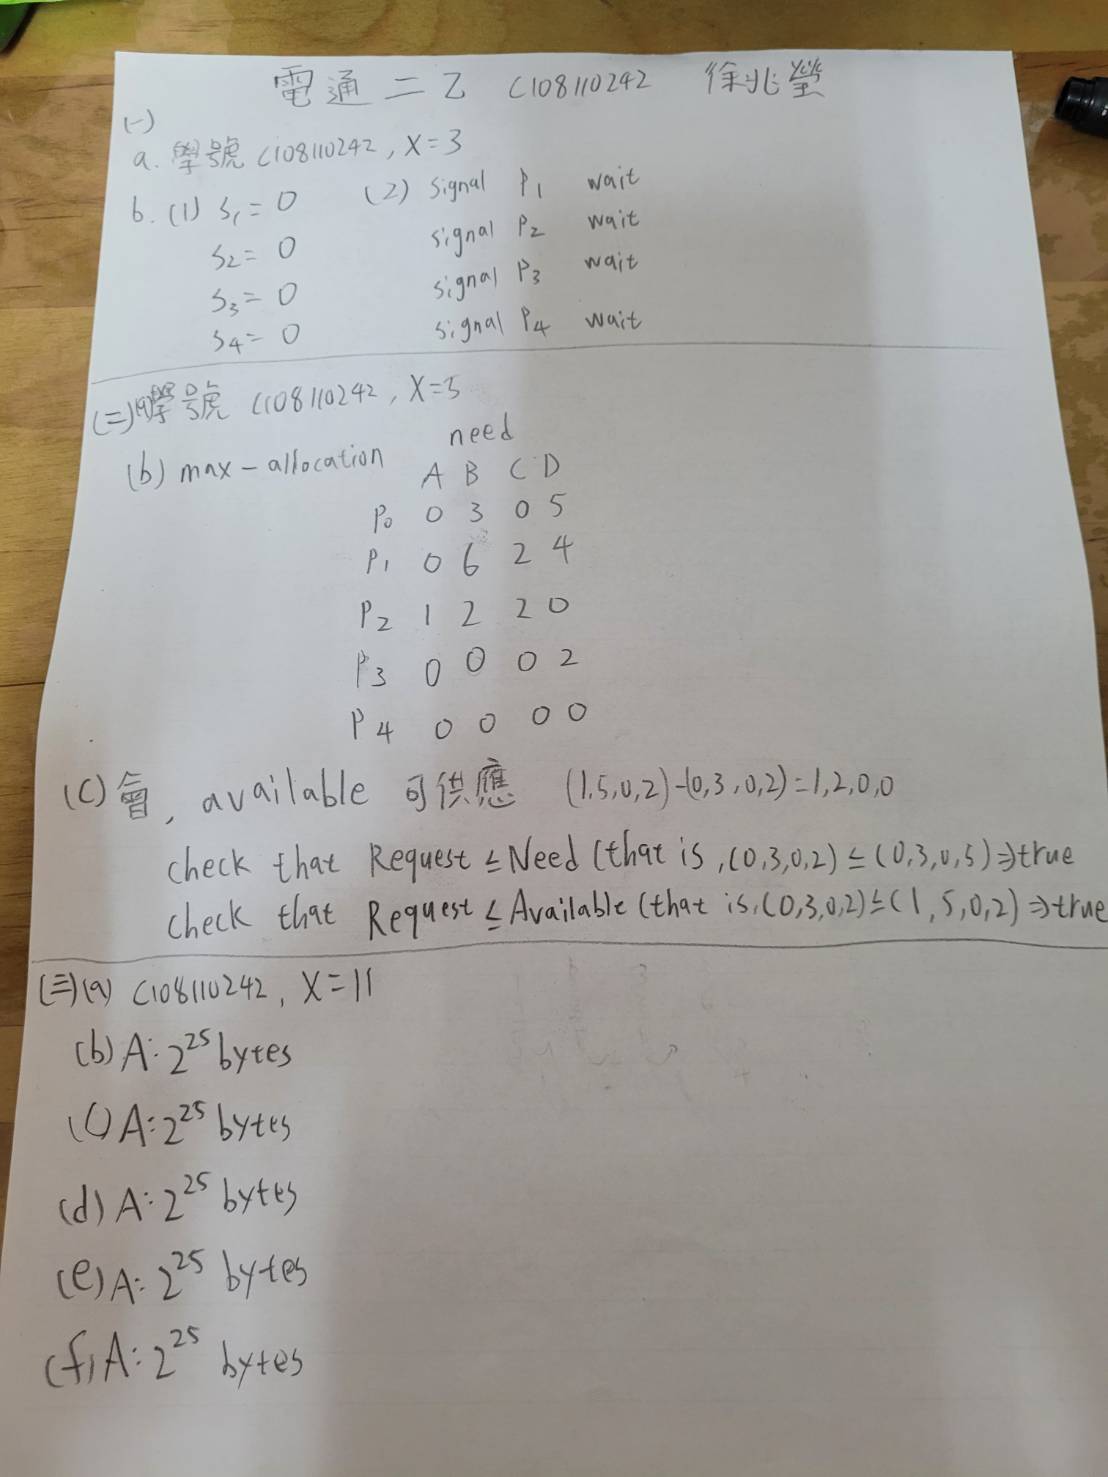 電通二乙 C108110242 徐兆瑩
(一)
a. 學號 C108110242, X=3
b. (1) S₁=0 (2) signal P₁ wait
S₂=0 signal P₂ wait
S₃=0 signal P₃ wait
S₄=0 signal P₄ wait
(二)(a)學號 C108110242, X=5
(b) max-allocation need
A B C D
P₀ 0 3 0 5
P₁ 0 6 2 4
P₂ 1 2 2 0
P₃ 0 0 0 2
P₄ 0 0 0 0
(c) 會, available 可供應 (1,5,0,2)-(0,3,0,2)=1,2,0,0
check that Request ≤ Need (that is, (0,3,0,2) ≤ (0,3,0,5) ⇒ true
check that Request ≤ Available (that is, (0,3,0,2) ≤ (1,5,0,2) ⇒ true
(三)(a) C108110242, X=11
(b) A: 2²⁵ bytes
(c) A: 2²⁵ bytes
(d) A: 2²⁵ bytes
(e) A: 2²⁵ bytes
(f) A: 2²⁵ bytes